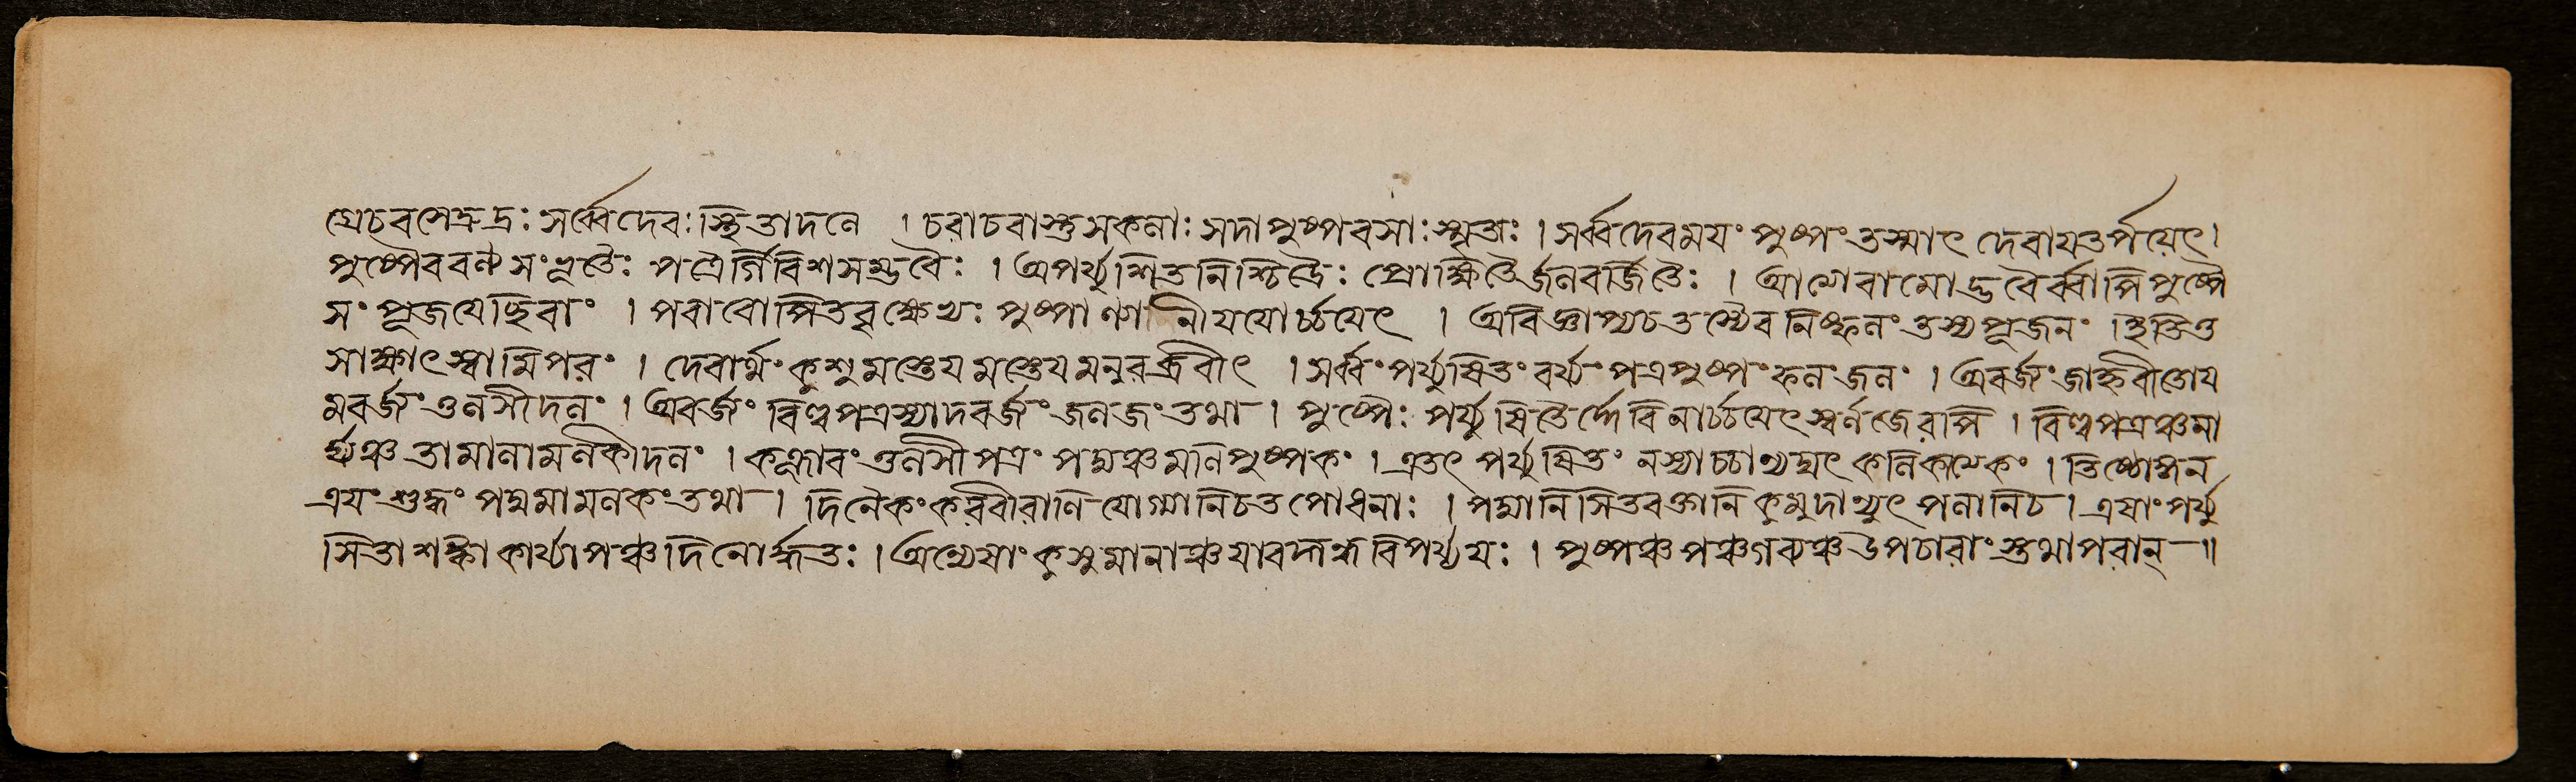 গ্রেচবসেদ্রুদ্রঃ সর্ব্বেদেবঃস্থিতাদলে । চরাচরাস্তুসকলাঃ সদাপুষ্পরসাঃস্মৃতাঃ । সর্ব্বদেবময়ং পুষ্পং তস্মাৎ দেবায়তর্পয়েৎ ।
পুষ্পৈররন্য সংভূতৈঃ পত্রৈর্গিরিশসম্ভবৈঃ । অপর্য্যুশিতনিশ্চিদ্রৈঃ প্রোক্ষিতৈর্জনবর্জিতৈঃ । আত্মারামোদ্ভবৈর্ব্বাপিপুষ্পৈ
সংপূজয়েচ্ছিবাং । পরারোপিতবৃক্ষেভ্যঃ পুষ্পাণ্যানীয়যোর্চ্চয়েৎ । অবিজ্ঞাপ্যচতস্যৈব নিষ্ফলং তস্যপূজনং ।
সাক্ষাৎস্বামিপরং । দেবার্থং কুশুমস্তেয়মস্তেয়মনুরব্রবীৎ । সর্ব্বং পর্য্যুষিতং বর্য্যং পত্রপুষ্পং ফলংজলং । অবর্জং জাহ্নবীতোয়
মবর্জং তুলসীদলং । অবর্জং বিল্বপত্রস্যাদবর্জং জলজং তথা । পুষ্পৈঃ পর্য্যুষিতৈর্দ্দেবি নার্চ্চয়েৎ স্বর্ণজৈরপি । বিল্বপত্রঞ্চমা
র্ঘ্যঞ্চতামালামলকীদলং । কহ্লারং তুলসীপত্রং পদ্মঞ্চমুনিপুষ্পকং । এতৎ পর্য্যুষিতং নস্যাচ্চান্যদ্যৎ কলিকাত্মকং ।
এয়ং শুদ্ধং পদ্মমামলকংতথা । দিনৈকংকরবীরাণি যোগ্যানিচতপোধনাঃ । পদ্মানিসিতরক্তানি কুমুদান্যুৎপলানিচ । এষাং পর্য্যু
সিতাশঙ্কাকার্য্যাপঞ্চদিনোর্দ্ধতঃ । অন্যেষাং কুসুমানাঞ্চযাবদাহ্নবিপর্য্যয়ঃ । পুষ্পঞ্চপঞ্চগব্যঞ্চ উপচারাংস্তথাপরান্ ॥